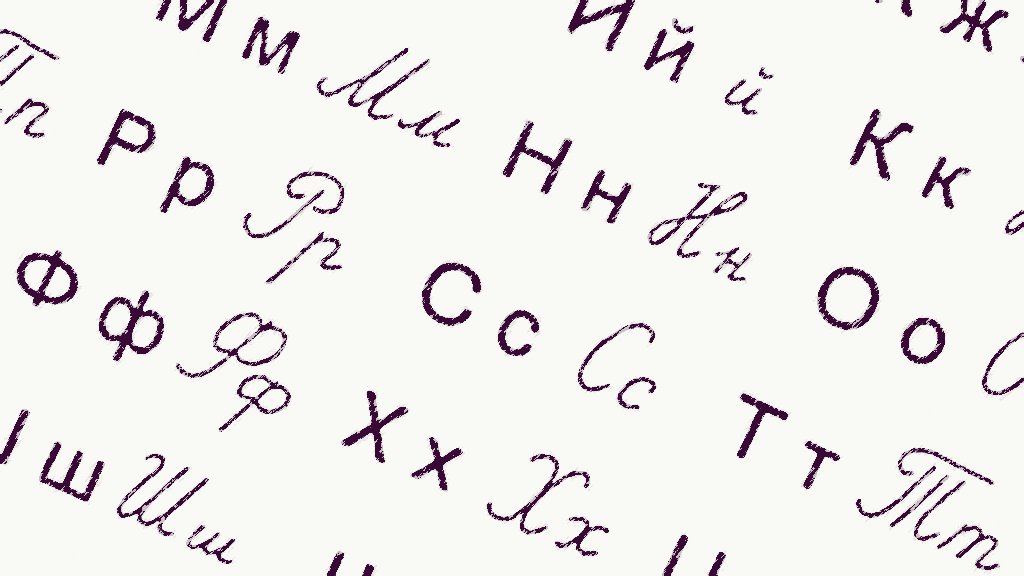 ж
И й й К к
М м Мм Н н Нн О о О
Пп Р р Рр С с Сс Т т Тт
Ф ф Фф Х х Хх
ш Шш